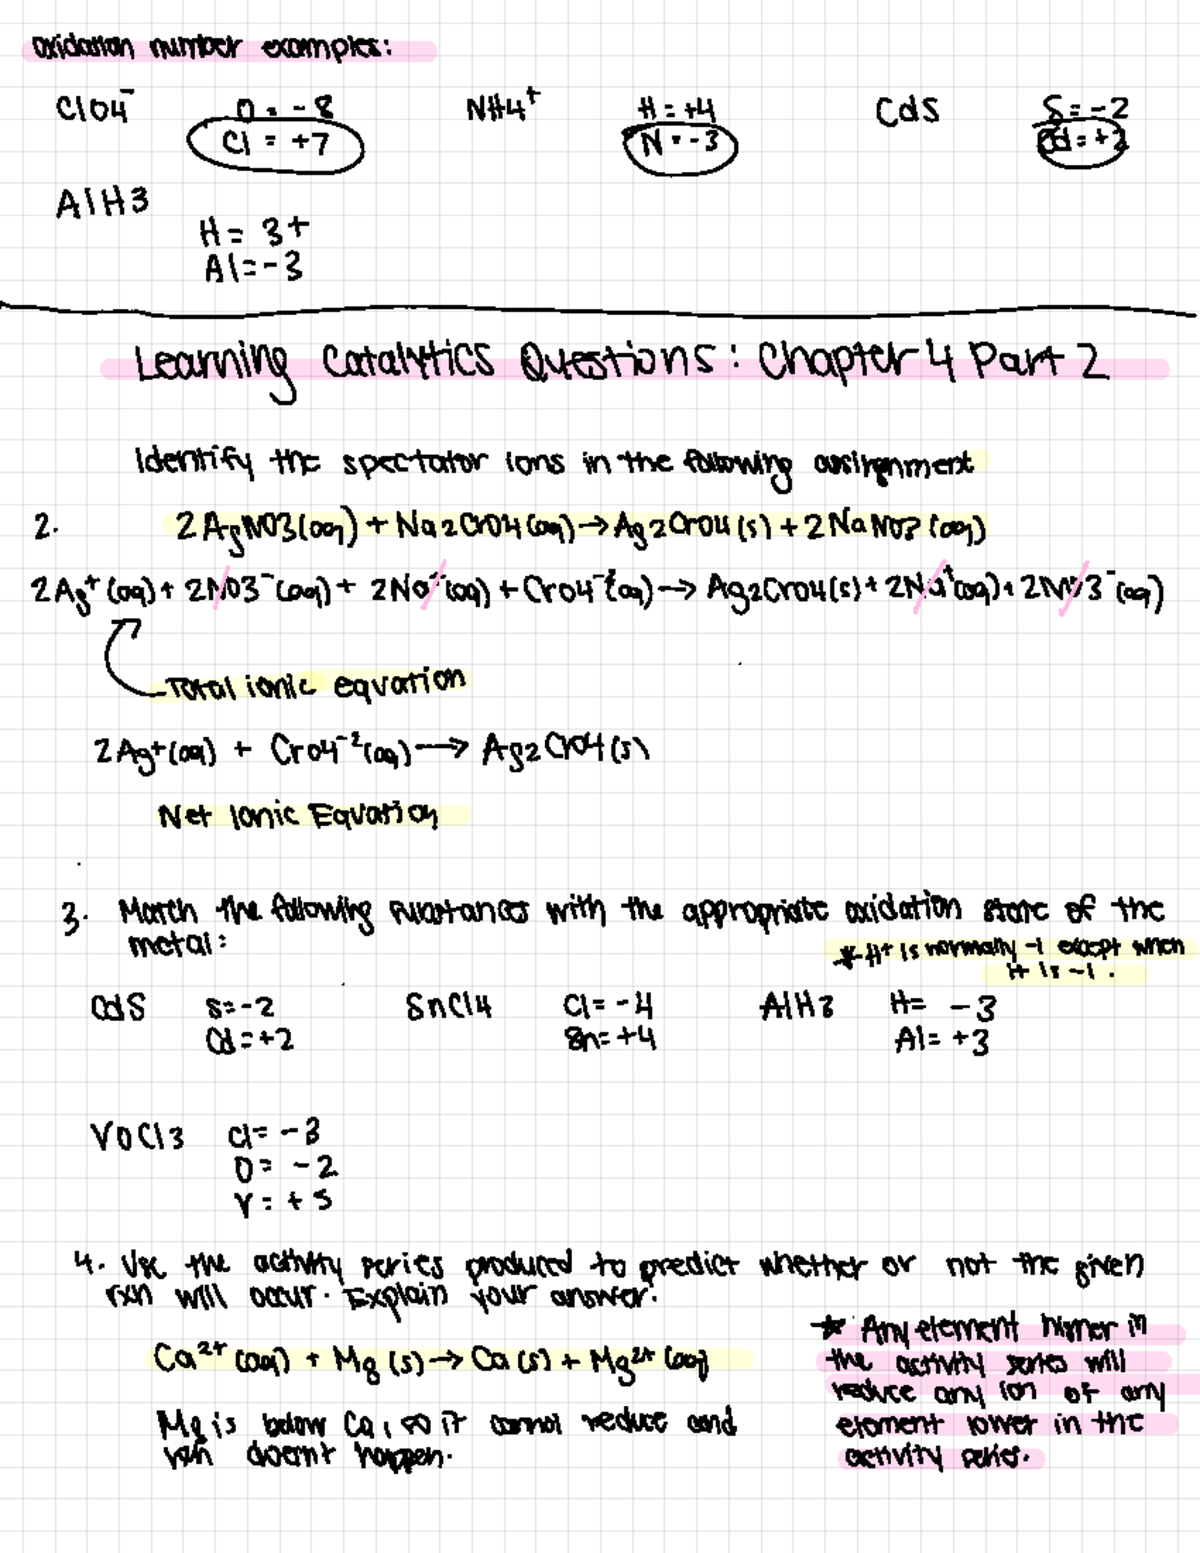 oxidation number examples:
ClO4⁻ O = -8 NH4⁺ H = +4 CdS S = -2
Cl = +7 N = -3 Cd = +2
AlH3
H = 3+
Al = -3
Learning Catalytics Questions: Chapter 4 Part 2
Identify the spectator ions in the following assignment
2. 2AgNO3(aq) + Na2CrO4(aq) → Ag2CrO4(s) + 2NaNO3(aq)
2Ag⁺(aq) + 2NO3⁻(aq) + 2Na⁺(aq) + CrO4⁻²(aq) → Ag2CrO4(s) + 2Na⁺(aq) + 2NO3⁻(aq)
Total ionic equation
2Ag⁺(aq) + CrO4⁻²(aq) → Ag2CrO4(s)
Net Ionic Equation
3. Match the following substances with the appropriate oxidation state of the
metal:
*H⁺ is normally -1 except when
it is -1.
CdS S = -2 SnCl4 Cl = -4 AlH3 H = -3
Cd = +2 Sn = +4 Al = +3
VOCl3 Cl = -3
O = -2
V = +5
4. Use the activity series produced to predict whether or not the given
rxn will occur. Explain your answer.
Ca²⁺(aq) + Mg(s) → Ca(s) + Mg²⁺(aq)
Mg is below Ca, so it cannot reduce and
rxn doesn't happen.
* Any element higher in
the activity series will
reduce any ion of any
element lower in the
activity series.